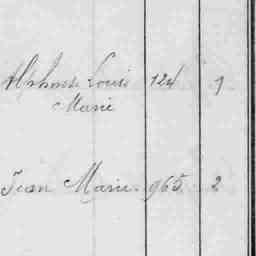 Alphonse Louis 124 1
Marie
Jean Marie 965 2